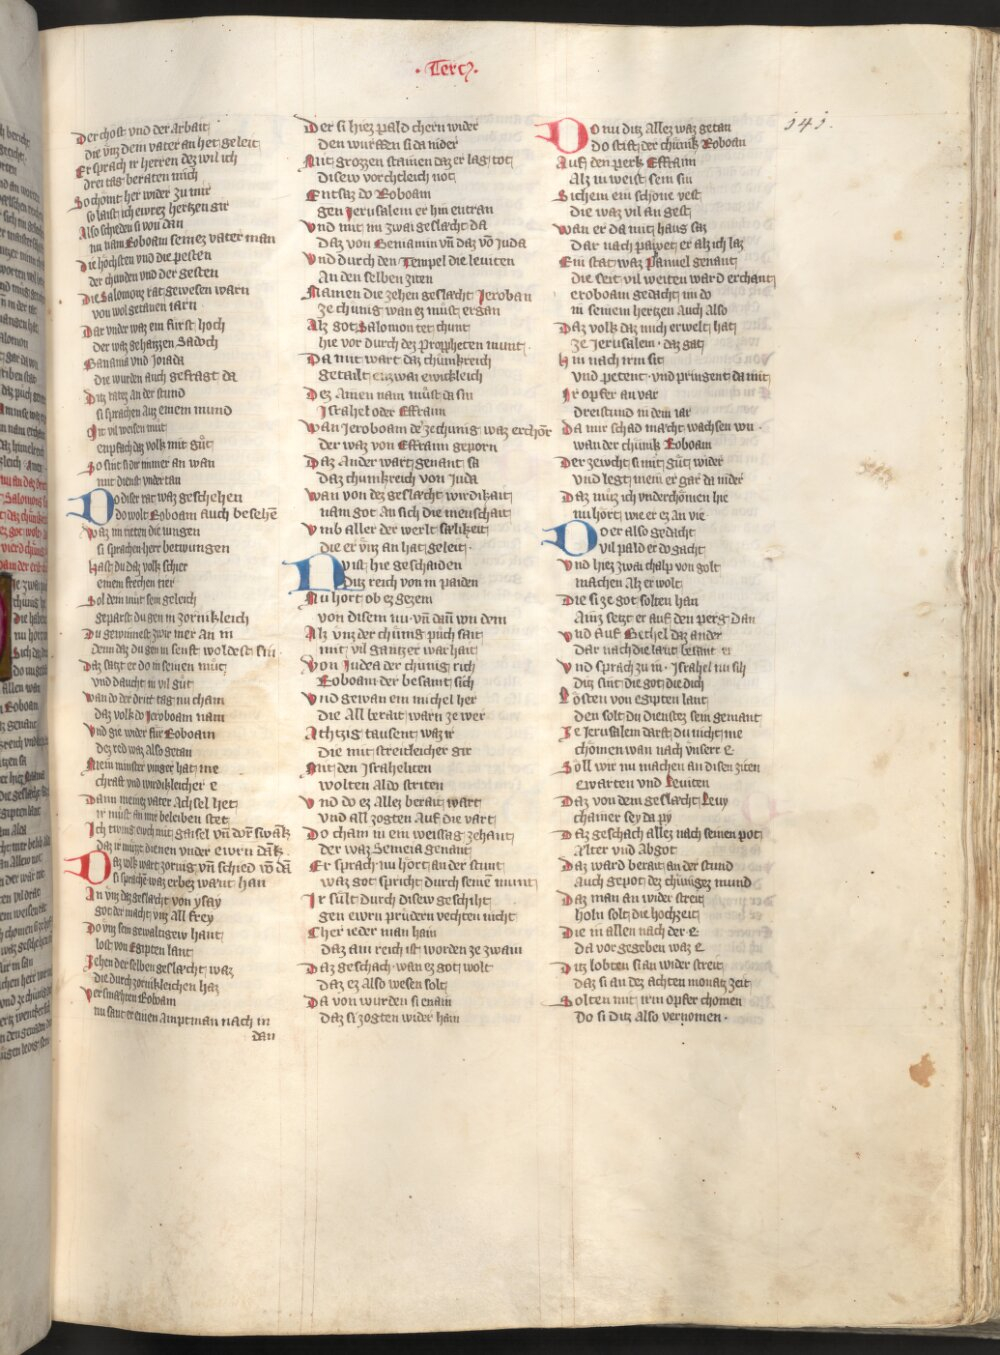 · Tercz ·
345.
Der chost vnd der arbait
die vnz dem vater an het geleit
Er sprach ir herren dez wil ich
drei tag beraten mich
So chomt her wider zu mir
so laist ich ewrez hertzen gir
Also schieden si von dan
nu nam Roboam seinez vater man
Die hochsten vnd die pesten
der chunden vnd der gesten
Die Salomonz rat gewesen warn
von wol getanen iarn
Dar vnder waz ein fürst hoch
der waz gehaizzen Sadoch
Banania vnd Joiada
die wurden auch gefragt da
Diz ratez an der stund
si sprachen auz einem mund
Mit vil weisen mut
enpfach daz volk mit gůt
So sint si dir immer an wan
mit dienst vndertan
Do diser rat waz geschehen
do wolt Roboam auch besehē
Waz im rieten die iungen
si sprachen herr betwungen
Hast du daz volk schier
einem frechen tier
Sol dein mut sein geleich
geparst du gen in zornikleich
Du gewinnest zwir mer an in
Denn daz du gen in senft woldest sin
Daz satzt er do in seinen můt
vnd daucht in vil gůt
Wan do der drit tag nu cham
daz volk do Jeroboam nam
Vnd gie wider für Roboam
dez red waz also getan
Mein minster vinger hat me
chraft vnd wirdikleicher e
Dann meinz vater Achsel het
ir můst an mir beleiben stet
Ich twing ewch mit gaisel vn̄ dor swāk
daz ir müzt dienen vnder ewrn dāk
Daz volk wart zornig vn̄ schied vō dā
si sprachē waz erbez wart han
In vnz dez geslächt von ysay
got der macht vnz all frey
Do vnz sein gewaltigew hant
lost von Egipten lant
Zehen der selben geslächt waz
die durch zornikleichen haz
Versmahten Roboam
nu sant er einen Amptman nach in
dan
Der si hiez pald chern wider
den wurffen si da nider
Mit grozzen stainen daz er lag tot
disew vorchtleich not
Entsaz do Roboam
gen Jerusalem er hin entran
Vnd mit im zwai geslächt da
daz von Beniamin vn̄ daz vō iuda
Vnd durch den Tempel die leuiten
An den selben ziten
Namen die zehen geslächt Jeroboan
ze chunig wan ez must ergan
Alz got Salomon tet chunt
hie vor durch dez propheten munt
Da mit wart daz chünkreich
getailt enzwai ewicleich
Dez ainen nam můst da sin
Israhel oder Effraim
Wan Jeroboam der ze chunig waz erchorn
der waz von Effraim geporn
Daz Ander wart genant sa
daz chunkreich von iuda
Wan von dez geslächt wirdikait
nam got an sich die menschait
Vmb aller der werlt sälikeit
die er vnz an hat geleit
Nu ist hie geschaiden
diz reich von in paiden
Nu hört ob ez gezem
von disem nu vn̄ dan̄ wu dem
Alz vnz der chünig půch sait
mit vil gantzer warhait
Von Judea der chunig rich
Roboam der besamt sich
Vnd gewan ein michel her
die All berait warn ze wer
Achtzig tausent waz ir
die mit streitleicher gir
Mit den Israheliten
wolten aldo striten
Vnd do ez allez berait wart
vnd all zogten Auf die vart
Do cham in ein weissag zehant
der waz Semeia genant
Er sprach nu hört an der stunt
waz got spricht durch seinē munt
Ir sült durch disew geschiht
gen ewrn prüdern vechten niht
Cher ieder man haim
daz ain reich ist worden ze zwain
Daz geschach wan ez got wolt
daz ez also wesen solt
Da von wurden si enain
daz si zogten wider haim
Do nu ditz allez waz getan
do stift der chünik Roboam
Auf den perk Effraim
Alz in weist sein sin
Sichem ein schöne vest
die waz vil an gest
Wan er da mit haus saz
dar nach pawet er alz ich laz
Ein stat waz Panuel genant
die seit vil weiten ward erchant
Jeroboam gedacht im do
in seinem hertzen Auch also
Daz volk daz mich erwelt hat
ze Jerusalem · daz gat
Hin nach irm sit
vnd petent · vnd pringent da mit
Ir opfer an var
dreistund in dem iar
Da mir schad macht wachsen wu
wan der chünik Roboam
Der zewcht si mit gůt wider
vnd legt mein er gar da nider
Daz můz ich vnderchömen hie
nu hört wie er ez an vie
Do er also gedacht
vil pald er do gacht
Vnd hiez zwai chalp von golt
machen alz er wolt
Die si ze got solten han
Ainz setzt er auf den perg Dan
Vnd auf Bethel daz ander
Dar nach die laut besant er
Vnd sprach zu in · Israhel nu sih
ditz sint die got die dich
Losten von Egipten lant
den solt du dienstez sein gemant
Ze Jerusalem darft du nicht me
chömen wan nach vnserr e
Söll wir nu machen an disen ziten
Ewarten vnd Leuiten
Daz von dem geslächt Leuy
chainer sey da py
Daz geschach allez nach seinem pot
Alter vnd Abgot
Daz ward berait an der stund
Auch gepot dez chünigez mund
Daz man an wider streit
holn solt die hochzeit
Die in allen nach der e
da vor gegeben waz e
Diz lobten si an wider streit
daz si an dez achten monatz zeit
Solten mit irm opfer chomen
Do si diz also vernomen ·